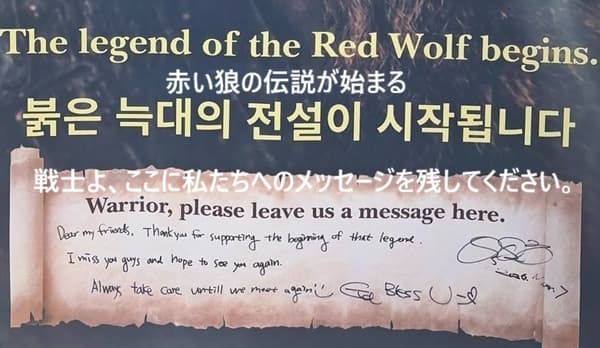 The legend of the Red Wolf begins.
赤い狼の伝説が始まる
붉은 늑대의 전설이 시작됩니다
戦士よ、ここに私たちへのメッセージを残してください。
Warrior, please leave us a message here.
Dear my friends, Thank you for supporting the beginning of that legend.
I miss you guys and hope to see you again.
Always take care untill we meet again God Bless U